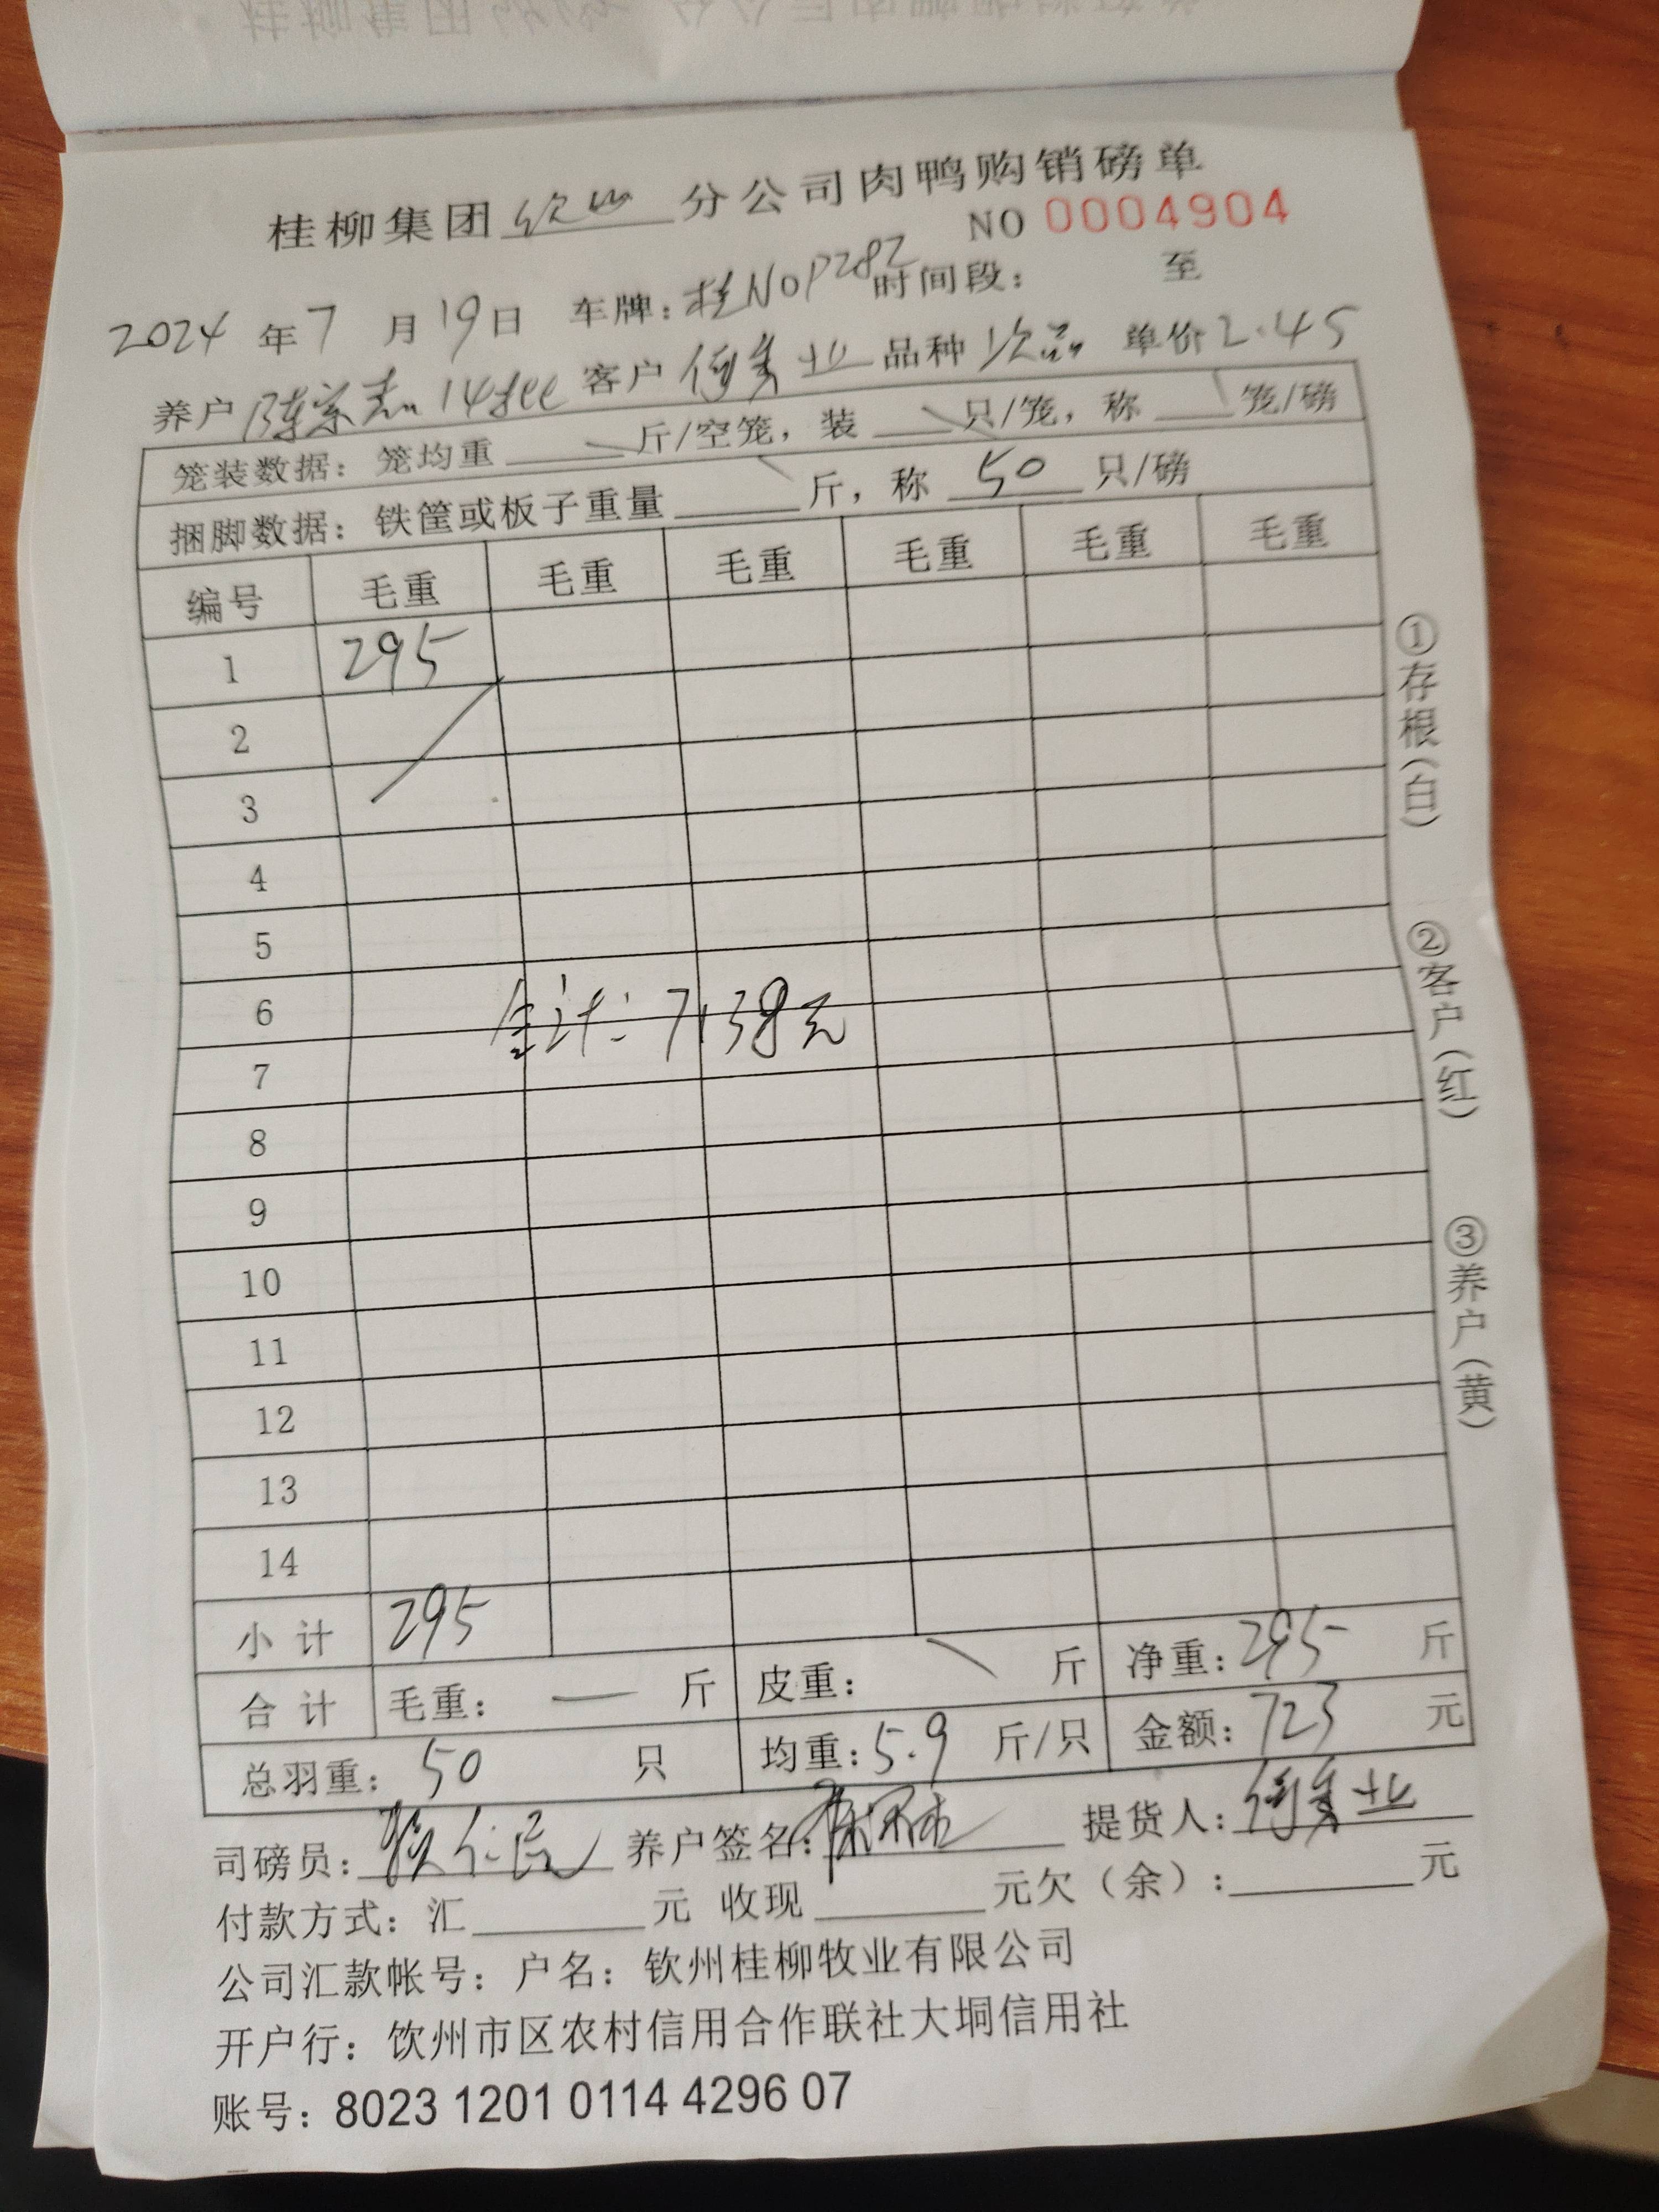 桂柳集团 钦州 分公司肉鸭购销磅单
NO 0004904
2024 年 7 月 19 日 车牌：桂N0P282 时间段： 至
养户 陈宗志 客户 业 品种 次品 单价 2.45
笼装数据：笼均重 斤/空笼，装 只/笼，称 笼/磅
捆脚数据：铁筐或板子重量 斤，称 50 只/磅
编号 毛重 毛重 毛重 毛重 毛重 毛重
1 295
2
3
4
5
6
合计：7138元
7
8
9
10
11
12
13
14
小计 295
合计 毛重：— 斤 皮重： 斤 净重：295 斤
总羽重：50 只 均重：5.9 斤/只 金额：723 元
司磅员： 养户签名： 提货人： 业
付款方式：汇 元 收现 元欠（余）： 元
公司汇款帐号：户名：钦州桂柳牧业有限公司
开户行：钦州市区农村信用合作联社大垌信用社
账号：8023 1201 0114 4296 07
①存根（白）
②客户（红）
③养户（黄）